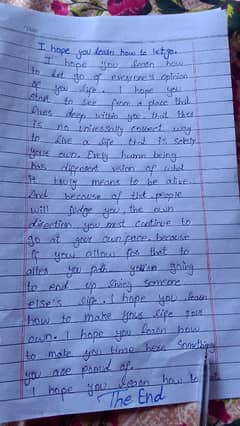 I hope you learn how to let go.
I hope you learn how
to let go of everyone's opinion
of you life. I hope you
start to see from a place that
lives deep within you that there
is no universally correct way
to live a life that is solely
your own. Every human being
has different vision of what
it truly means to be alive.
And because of that people
will judge you the own
direction you must continue to
go at your own pace, because
if you allow for that to
alter you path you're going
to end up living someone
else's life. I hope you learn
how to make your life your
own. I hope you learn how
to make you time here something
you are proud of.
I hope you learn how to let
The End